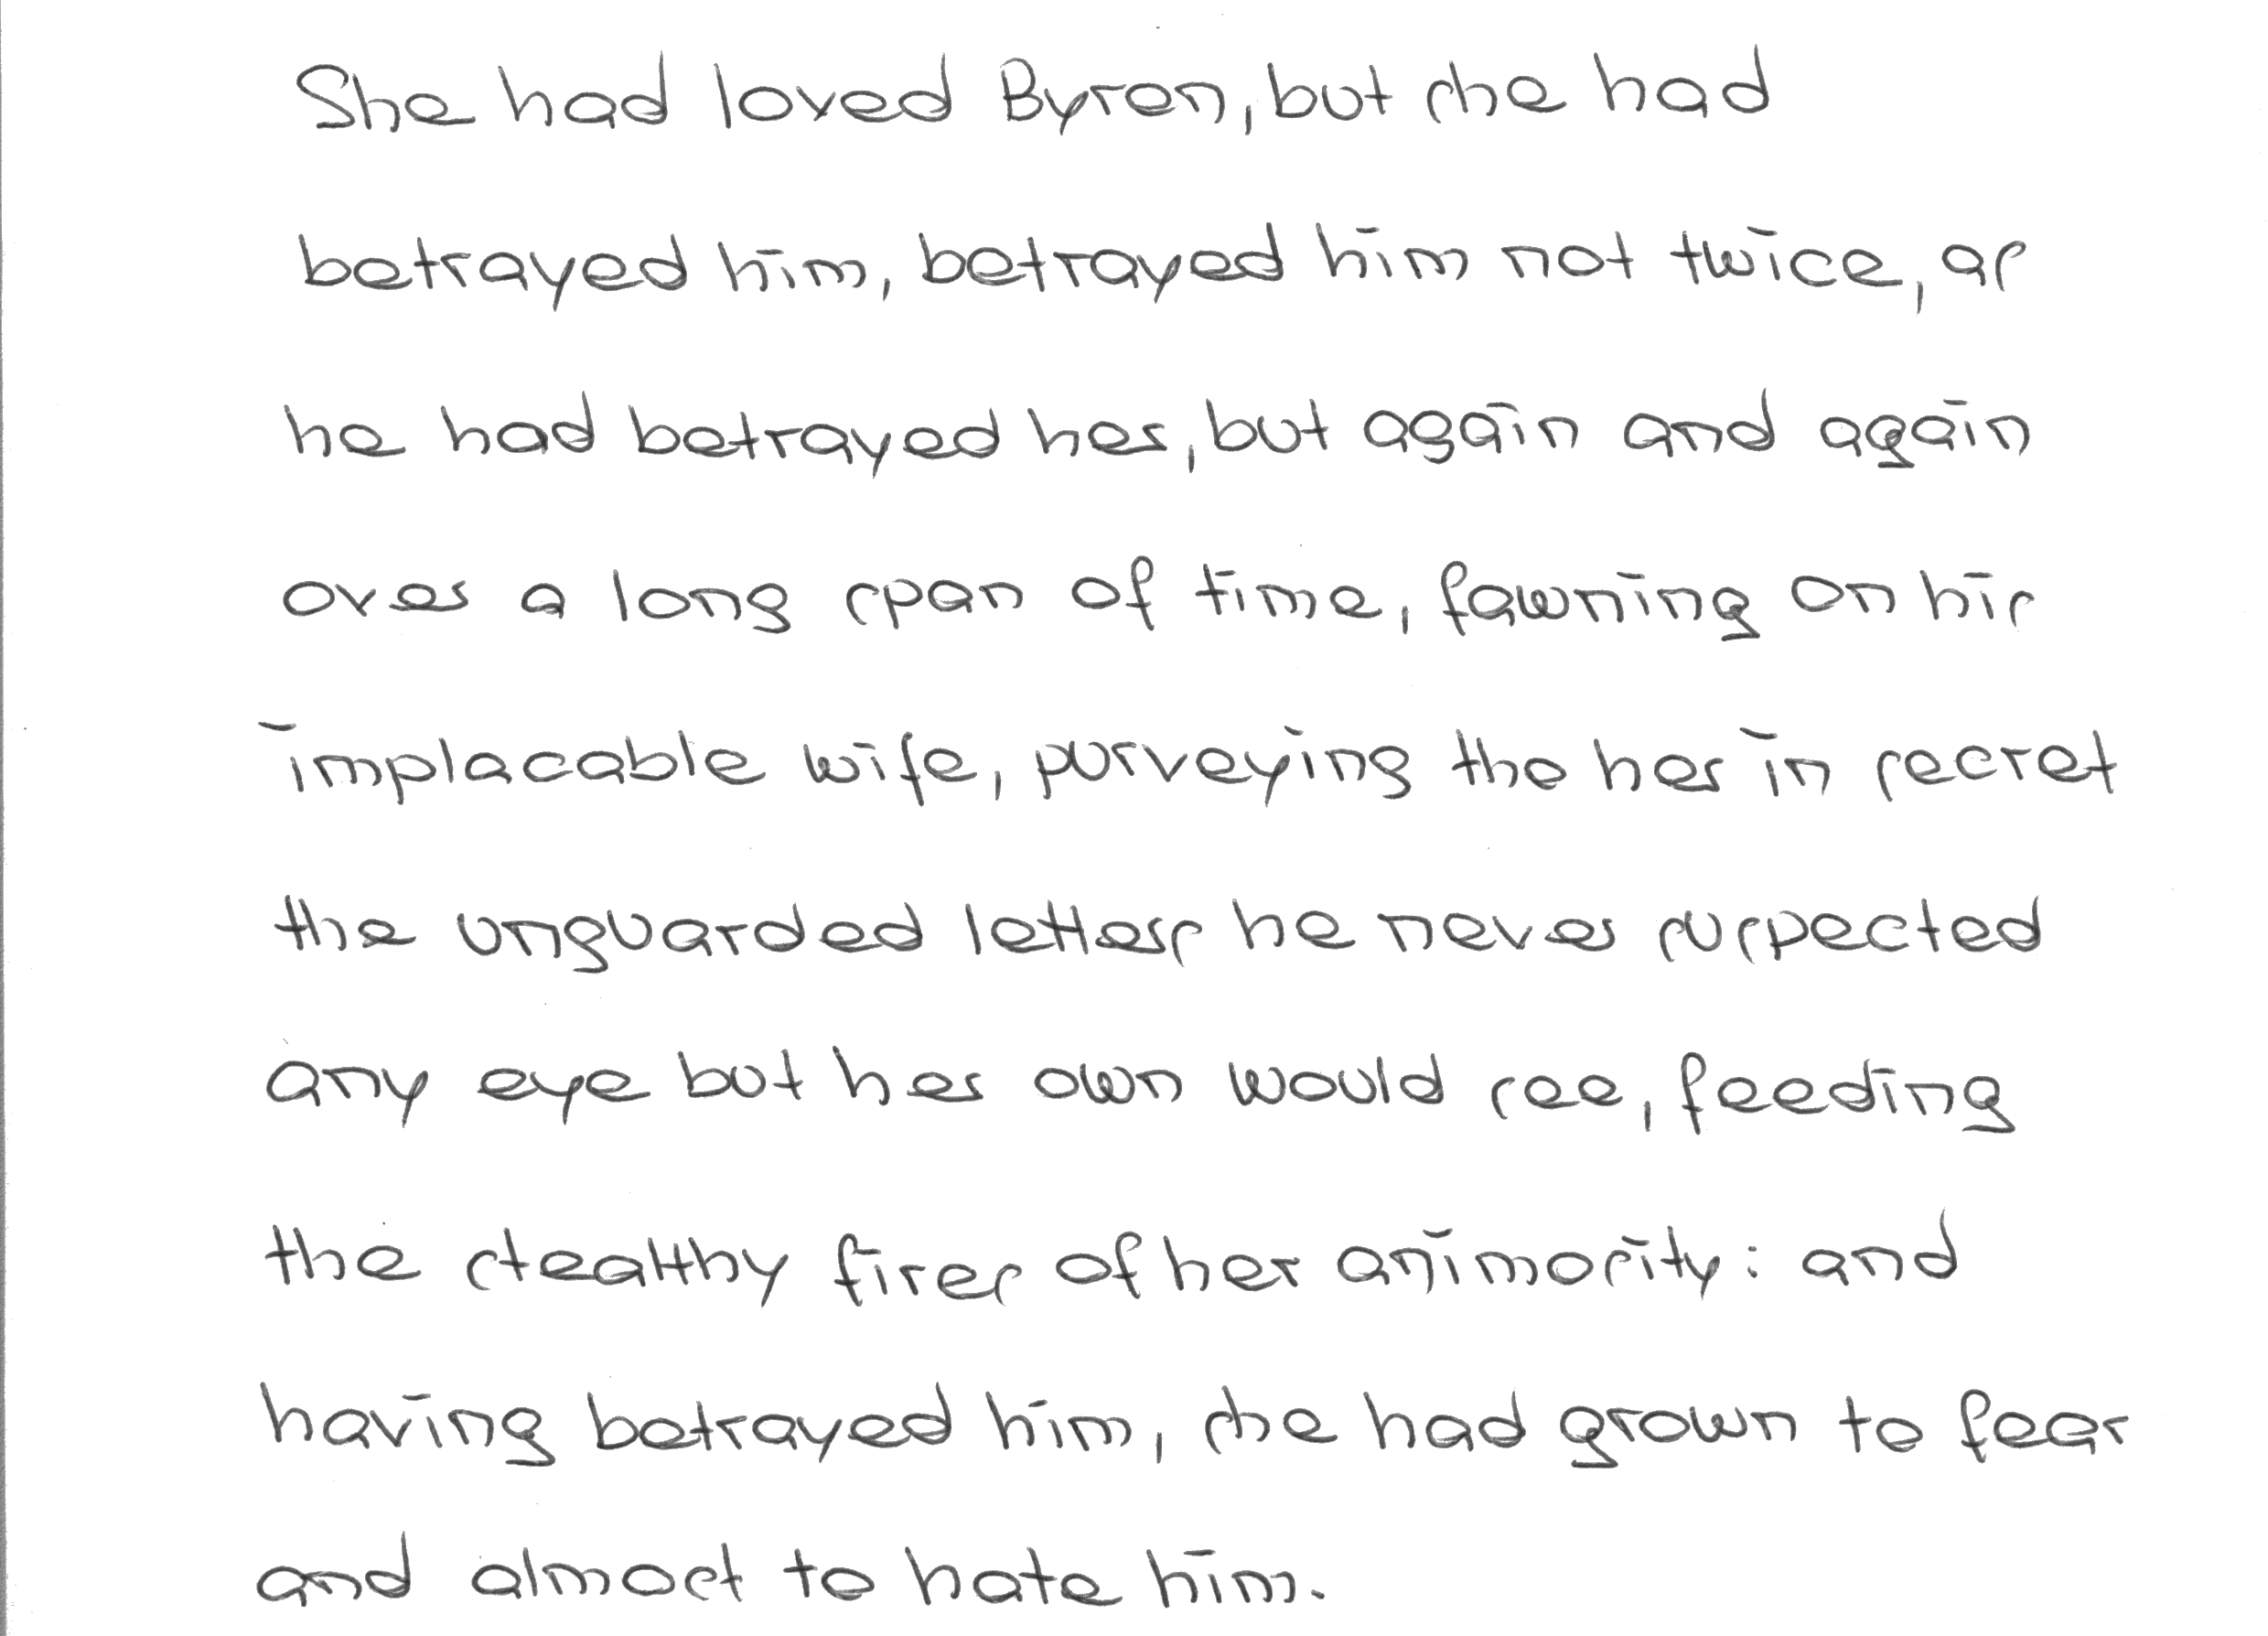 She had loved Byron, but she had
betrayed him, betrayed him not twice, as
he had betrayed her, but again and again
over a long span of time, fawning on his
implacable wife, purveying the her in secret
the unguarded letters he never suspected
any eye but her own would see, feeding
the stealthy fires of her animosity: and
having betrayed him, she had grown to fear
and almost to hate him.